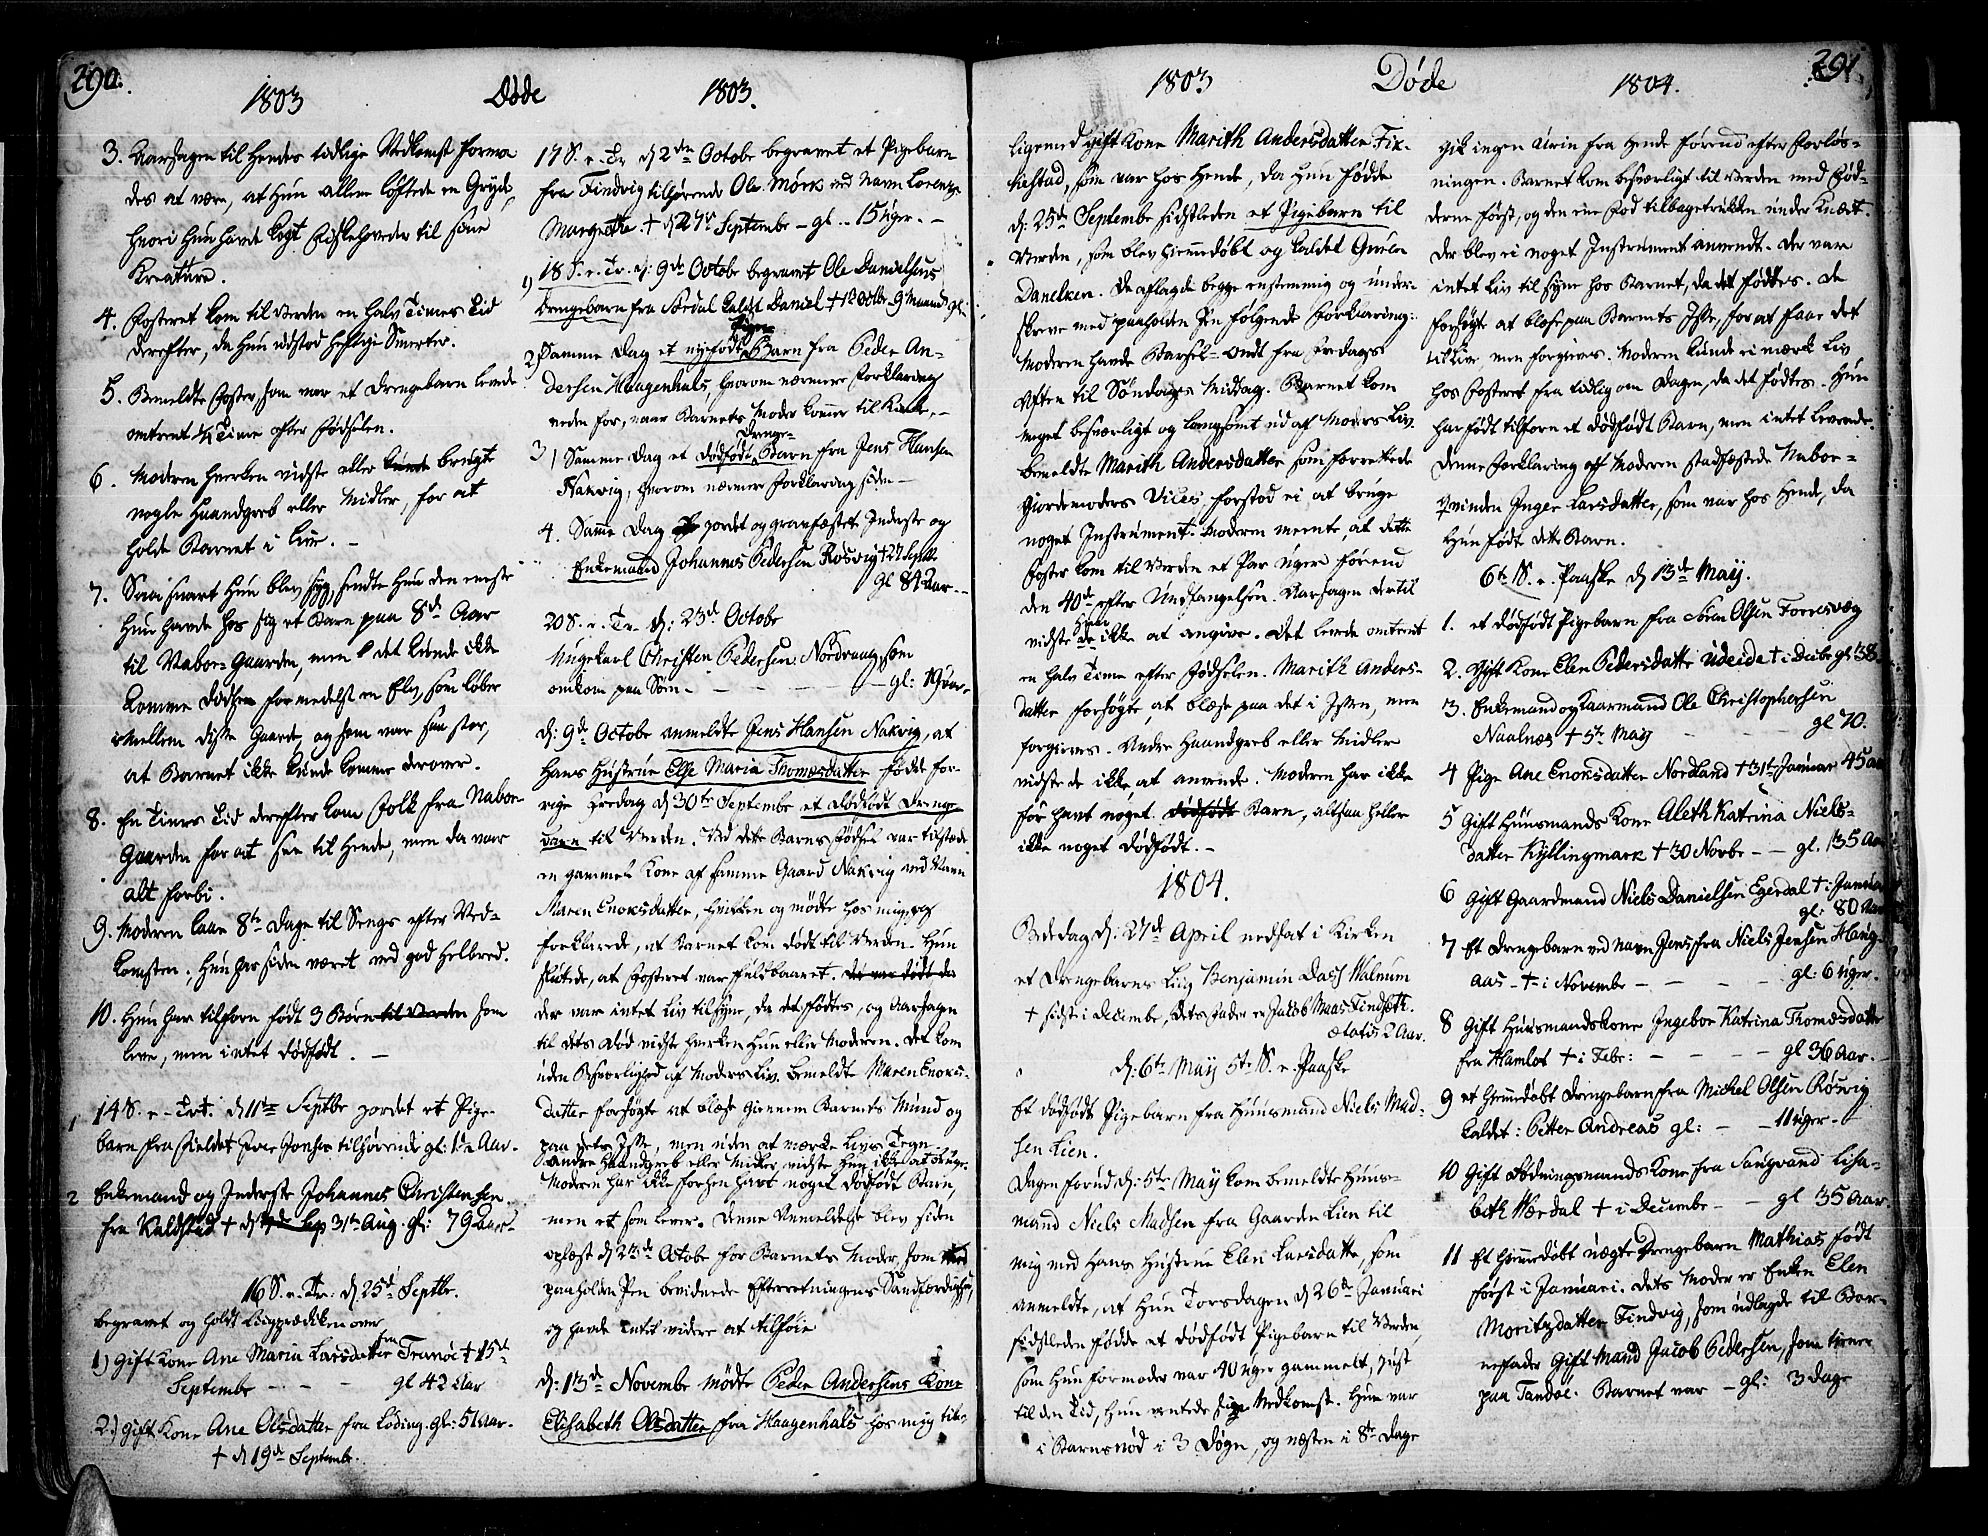 290.
1803 Døde 1803.
3. Aarsagen til hendes tidlige Nedkomst formo-
des at være, at Hun allene løftede en Gryde,
hvori Hun havde kogt Fiskehoveder til sine
Kreature.
4. Fosteret kom til Verden en halv Times Tid
derefter, da Hun udstod heftige Smerter.
5. Bemeldte Foster, som var et Drengebarn levede
omtrent 1/4 Time efter Fødselen.
6. Moderen hverken vidste eller kunde brugte
nogle Haandgreb eller Midler, for at
holde Barnet i Live. -
7. Saa snart Hun blev syg, sendte Hun den eneste
Hun havde hos sig et Barn paa 8de Aar
til Nabo-Gaarden, men det kunde ikke
komme formedelst en Elv, som løber
imellem disse Gaarde, og som var saa stor,
at Barnet ikke kunde komme derover.
8. En Times Tid derefter kom Folk fra Nabo-
Gaarden for at see til Hende, men da var
alt forbi.
9. Moderen laae 8te Dage til Sengs efter Ned-
komsten; Hun har siden været ved god Helbred.
10. Hun har tilforn født 3 Børn til Verden som
leve, men intet dødfødt. -
1 14 S. e. Trt. d 11te Septbr jordet et Pige-
barn fra Fieldet tilhørende gl: 1/2 Aar.
2 Enkemand og Inderste Johannes Christensen
fra Kaldstad † d 31te Aug. gl: 79 Aar.
16 S. e. Tr: d 25de Septbr.
begravet og holdt Liigprædiken over
1) Gift Kone Ane Maria Larsdatter fra Tranöe † 15de
September - - - gl 42 Aar
2) Gift Kone Ane Olsdatter fra Løding. gl: 51 Aar.
† d 19de Septembr.
17 S. e. Tr d 2den Octobr begravet et Pigebarn
fra Findvig tilhørende Ole Mørk ved Navn Lorentze
Margrethe. † d 27de September - gl .. 15 Uger. -
1) 18 S. e. Tr. d: 9de Octobr begravet Ole Danielsens
Drengebarn fra Sørdal kaldt Daniel † 1 Octbr 9 Maaneds gl.
2) Samme Dag et nyefødt Pige Barn fra Peder An-
dersen Haagenhals, hvorom nærmere Forklaring
neden for, naar Barnets Moder kommer til Kirke. -
3) Samme Dag et dødfødt Drenge- Barn fra Jens Hansen
Nakvig, hvorom nærmere Forklaring siden -
4. Samme Dag jordet og gravfæstet Inderste og
Enkemand Johannes Pedersen Rosvig † 27 Septbr
gl 84 Aar -
20 S. e. Tr. d: 23de Octobr
Ungekarl Christen Pedersen Nordvaag, som
omkom paa Søen - - - - gl: 19 Aar.
d: 9de October anmeldte Jens Hansen Nakvig, at
Hans Hustrue Else Maria Thomæsdatter fødde for-
rige Fredag d 30te Septembr et dødfødt Drenge-
barn til Verden. Ved dette Barns Fødsel var tilstæde
en gammel Kone af samme Gaard Nakvig ved Navn
Maren Enoksdatter, hvilken og mødte hos mig, og
forklarede, at Barnet kom dødt til Verden. Hun
sluttede, at Fosteret var fuldbaaret. Det var dødt da
der var intet Liv tilsyne, da det fødtes, og Aarsagen
til dets Død vidste hverken Hun eller Moderen. Det kom
uden Besværlighed af Moders Liv. Bemeldte Maren Enoks-
datter forsøgte at blæse giennem Barnets Mund og
paa dets Isse, men uden at mærke Livs Tegn.
Andre Haandgreb eller Midler vidste Hun ikke at bruge.
Moderen har ikke forhen havt noget dødfødt Barn,
men et som lever. Denne Anmeldelse blev siden
oplæst d 23de Octobr for Barnets Moder, som med
paaholden Pen bevidnede Efterretningens Sandfærdighed,
og havde intet videre at tilføie
d: 13de November mødte Peder Andersens Kone
Elisabeth Olsdatter fra Haagenhals hos mig till-
291.
1803 Døde 1804.
ligemed gift Kone Marith Andersdatter Fix-
kestad, som var hos Hende, da Hun fødde
d: 25de September sidstleden et Pigebarn til
Verden, som blev hiemmedøbt og kaldet Guren
Danelken. De aflagde begge enstemmig og under-
skrev med paaholden Pen følgende Forklaring:
Moderen havde Barsel-ondt fra Fredags
Aften til Søndags Middag. Barnet kom
meget besværligt og langsomt ud af Moders Liv.
Bemeldte Marith Andersdatter som forrettede
Giordemoders Vices, forstod ei at bruge
noget Instrument. Moderen meente, at dette
Foster kom til Verden et Par Uger førend
den 40de efter Undfangelsen. Aarsagen dertil
vidste Hun ikke at angive. Det levede omtrent
en halv Time efter Fødselen. Marith Anders-
datter forsøgte, at blæse paa det i Issen, men
forgieves. Andre Haandgreb eller Midler
vidste de ikke, at anvende. Moderen har ikke
før havt noget dødfødt Barn, altsaa heller
ikke noget dødfødt. -
1804.
Bededag d: 27de April nedsat i Kirken
et Drengebarns Liig Benjamin Dass Walnum
† sidst i Decembr, dets Fader er Jacob Maas Findseth.
ætatis 2 Aar.
d: 6te May 5te S. e. Paaske
Et dødfødt Pigebarn fra Huusmand Niels Mad-
sen Lien.
Dagen forud d: 5te May kom bemeldte Huus-
mand Niels Madsen fra Gaarden Lien til
mig med Hans Hustrue Elen Larsdatter, som
anmeldte, at Hun Torsdagen d 26de Januari
sidstleden fødde et dødfødt Pigebarn til Verden,
som Hun formoder var 40 Uger gammelt, just
til den Tid, Hun ventede sin Nedkomst. Hun var
i Barnsnød i 3 Døgn, og næsten i 8te Dage
gik ingen Urin fra Hende førend efter Forløs-
ningen. Barnet kom besværligt til Verden med Fød-
derne først, og den ene Fod tilbagetrukken under Knæet.
Der blev ei noget Instrument anvendt. Der var
intet Liv til syne hos Barnet, da det fødtes. De
forsøgte at blæse paa Barnets Isse, for at faae det
til Live, men forgieves. Moderen kunde ei mærke Liv
hos Fosteret fra tidlig om Dagen, da det fødtes. Hun
har født tilforn et dødfødt Barn, men intet levende.
Denne Forklaring af Moderen stadfæstede Naboe-
Qvinden Inger Larsdatter, som var hos Hende, da
Hun fødte dette Barn.
6te S. e. Paaske d 13de May.
1. et dødfødt Pigebarn fra Sören Olsen Forresvæg
2. Gift Kone Elen Pedersdatter Udeide † i Decbr gl 38.
3. Enkemand og Kaarmand Ole Christophersen
Naalnæs † 5te May - - gl 70.
4 Pige Ane Enoksdatter Nordland † 31te Januar 45 aar
5 Gift Huusmands Kone Aleth Katrina Niels-
datter Kyllingmark † 30 Novbr - - gl. 35 Aar
6 Gift Gaardmand Niels Danielsen Egerdal † i Januar
gl: 80 Aar
7 Et Drengebarn ved Navn Jens fra Niels Jensen Haug-
aas - † i Novembr - - - gl: 6 Uger.
8 Gift Huusmandskone Ingebor Katrina Thomæsdatter
fra Hamlot † i Febr: - - - gl 36 Aar.
9 et hiemmedøbt Drengebarn fra Michel Olsen Rösvig
kaldet: Petter Andreas gl: - - 11 Uger -
10 Gift Bødningsmands Kone fra Langvand Lisa-
beth Wærdal † i Decembr - - gl 35 Aar
11 Et hiemmedøbt uægte Drengebarn Mathias, født
først i Januari. Dets Moder er Enken Elen
Moritzdatter Findvig, som udlagde til Bar-
nefader Gift Mand Jacob Pedersen, som tiener
paa Tandöe. Barnet var - gl: 3 Dage